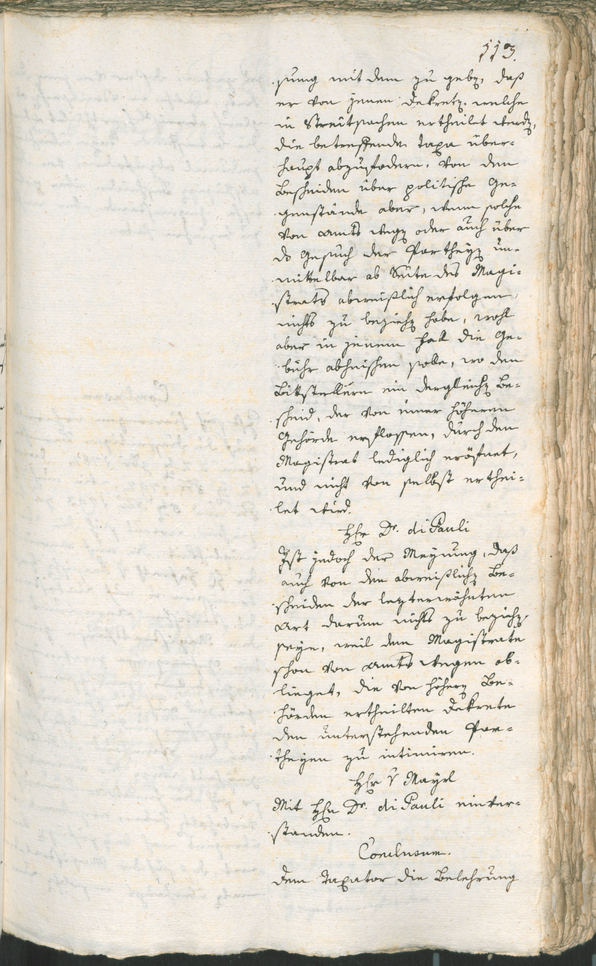 113.
sung mit dem zu geben, daß
er von jenen Dekreten, welche
in Streitsachen ertheilet werden,
die betreffende Taxa über-
haupt abzufodern, von den
Bescheiden über politische Ge-
genstände aber, wenn solche
von Amts wegen oder auch über
das Gesuch der Partheyen un-
mittelbar ab Seite des Magi-
strats abweislich erfolgen
nichts zu beziehen habe, wohl
aber in jenem Fall die Ge-
bühr abheischen solle, wo den
Bittstellern ein dergleichen Be-
scheid, der von einer höheren
Behörde erflossen, durch den
Magistrat lediglich eröfnet,
und nicht von selbst erthei-
let wird.
Hhr Dr. di Pauli
Ist jedoch der Meynung, daß
auch von den abweislichen Be-
scheiden der letzterwähnten
Art darum nichts zu beziehen
seye, weil dem Magistrate
schon von Amts wegen ob-
lieget, die von höhern Be-
hörden ertheilten Dekrete
den unterstehenden Par-
theyen zu intimiren.
Hhr v Mayrl
Mit Hhn Dr. di Pauli einver-
standen.
Conclusum.
Dem Taxator die Belehrung